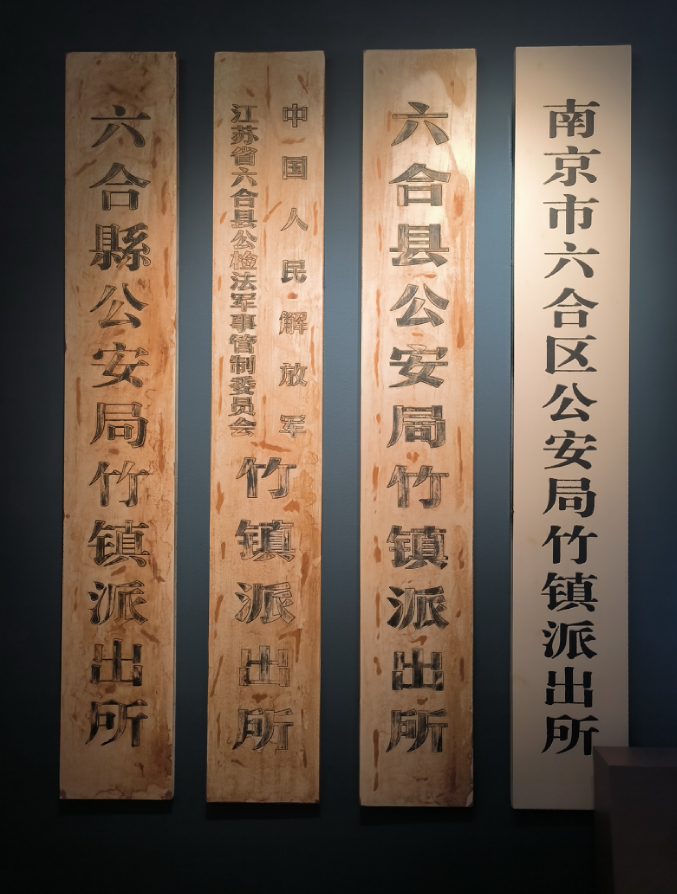 六合縣公安局竹镇派出所
中国人民解放军
江苏省六合县公检法军事管制委员会
竹镇派出所
六合县公安局竹镇派出所
南京市六合区公安局竹镇派出所